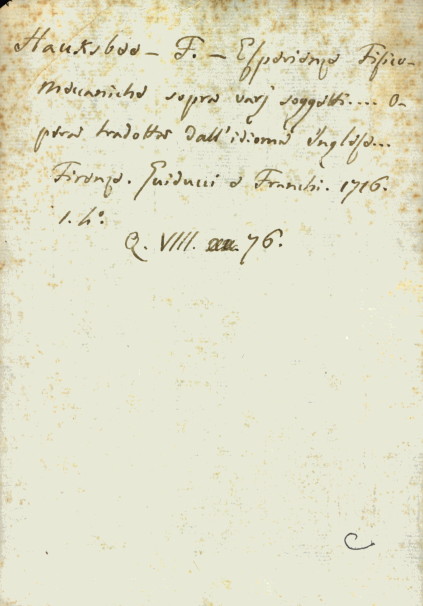 Hauksbee - F. - Esperienze Fisico-
Meccaniche sopra varj soggetti.... O-
pera tradotta dall'idioma Inglese...
Firenze. Guiducci e Franchi. 1716.
1. 4°.
Q. VIII. 76.
C